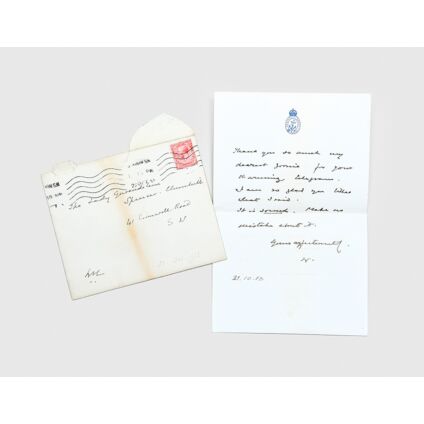 The Lady Gwendoline
Spencer Churchill
41 Cromwell Road
S W
Thank you so much my
dearest Goonie for your
charming telegram.
I am so glad you liked
what I said.
It is Make no
mistake about it.
Yours affectionately
W.
21.10.13